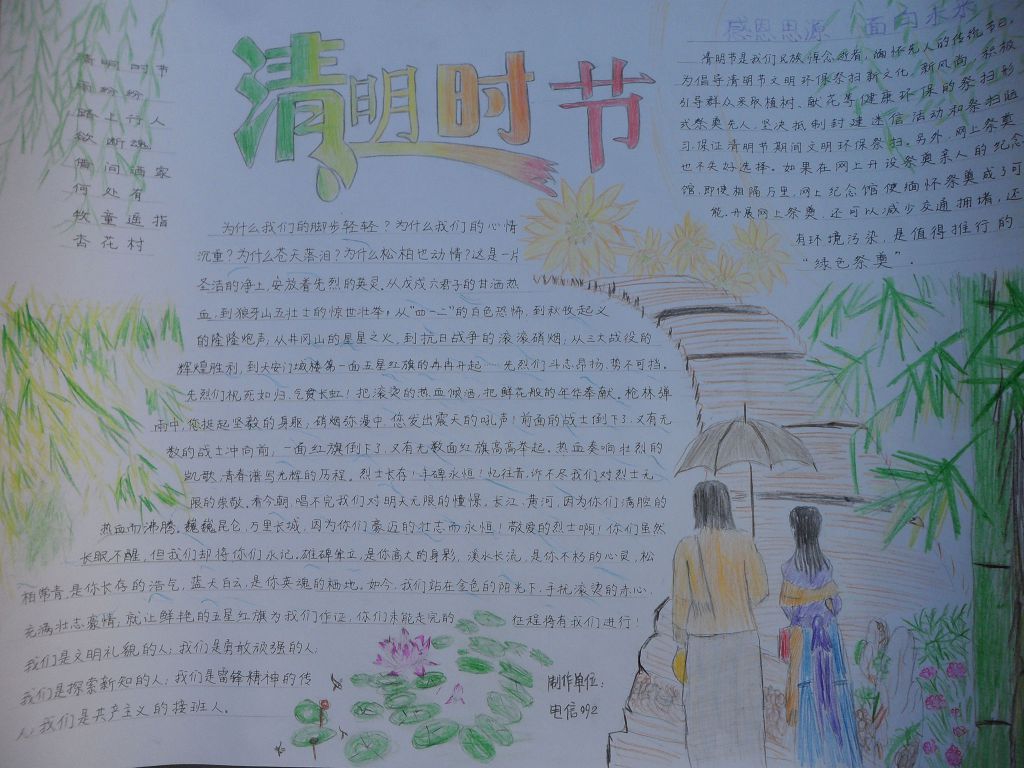 清明时节
清明时节
雨纷纷
路上行人
欲断魂
借问酒家
何处有
牧童遥指
杏花村
感恩思源 面向未来
清明节是我们民族悼念逝者,缅怀先人的传统节日,
为倡导清明节文明环保祭扫新文化,新风尚,积极
引导群众采取植树、献花等健康环保的祭扫形
式祭奠先人,坚决抵制封建迷信活动和祭扫陋
习,保证清明节期间文明环保祭扫。另外,网上祭奠
也不失好选择。如果在网上开设祭奠亲人的纪念
馆,即使相隔万里,网上纪念馆使缅怀祭奠成了可
能,开展网上祭奠,还可以减少交通拥堵,还
有环境污染,是值得推行的
“绿色祭奠”.
为什么我们的脚步轻轻?为什么我们的心情
沉重?为什么苍天落泪?为什么松柏也动情?这是一片
圣洁的净土,安放着先烈的英灵,从戊戌六君子的甘洒热
血,到狼牙山五壮士的惊世壮举;从“四一二”的白色恐怖,到秋收起义
的隆隆炮声;从井冈山的星星之火,到抗日战争的滚滚硝烟;从三大战役的
辉煌胜利,到天安门城楼第一面五星红旗的冉冉升起……先烈们斗志昂扬,势不可挡。
先烈们视死如归,气贯长虹!把滚烫的热血倾洒,把鲜花般的年华奉献。枪林弹
雨中,您挺起坚毅的身躯,硝烟弥漫中,您发出震天的吼声!前面的战士倒下了,又有无
数的战士冲向前,一面红旗倒下了,又有无数面红旗高高举起。热血奏响壮烈的
凯歌,青春谱写光辉的历程。烈士长存!丰碑永恒!忆往昔,诉不尽我们对烈士无
限的崇敬。看今朝,唱不完我们对明天无限的憧憬。长江、黄河,因为你们满腔的
热血而沸腾。巍巍昆仑,万里长城,因为你们豪迈的壮志而永恒!敬爱的烈士啊!你们虽然
长眠不醒,但我们却将你们永记。雄碑耸立,是你高大的身影,溪水长流,是你不朽的心灵,松
柏常青,是你长存的浩气,蓝天白云,是你英魂的栖地。如今,我们站在金色的阳光下,手扰滚烫的赤心,
充满壮志豪情,就让鲜艳的五星红旗为我们作证,你们未能走完的 征程将有我们进行!
我们是文明礼貌的人;我们是勇敢顽强的人;
我们是探索新知的人;我们是雷锋精神的传
人;我们是共产主义的接班人。
制作单位:
电信092